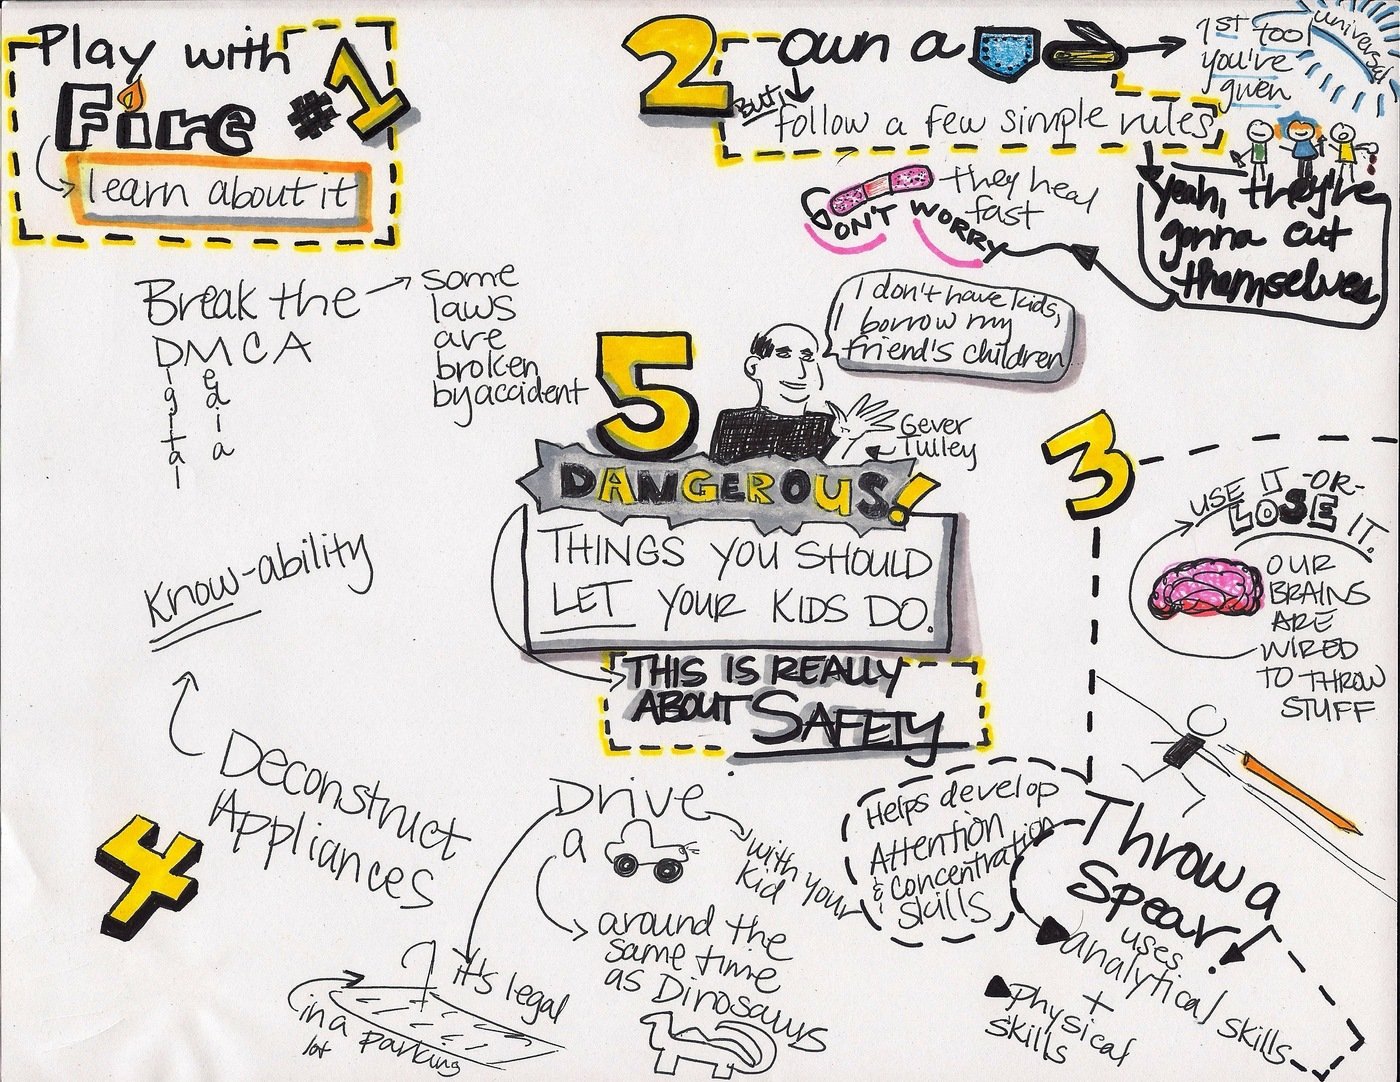 Play with
Fire #1
learn about it
2 own a
But,
follow a few simple rules
1st tool
you're
given
universal
Yeah, they're
gonna cut
themselves
Don't worry
they heal
fast
Break the
DMCA
Digital
Media
some
laws
are
broken
by accident
I don't have kids,
I borrow my
friend's children
Gever
Tulley
5
DANGEROUS!
THINGS YOU SHOULD
LET YOUR KIDS DO.
THIS IS REALLY
ABOUT SAFETY
3
USE IT -OR-
LOSE IT.
OUR
BRAINS
ARE
WIRED
TO THROW
STUFF
Throw a
Spear!
Helps develop
Attention
& concentration
skills
uses
analytical skills
+
Physical
skills
4
Deconstruct
Appliances
Know-ability
Drive
a
with your
kid
around the
same time
as Dinosaurs
it's legal
in a parking
lot